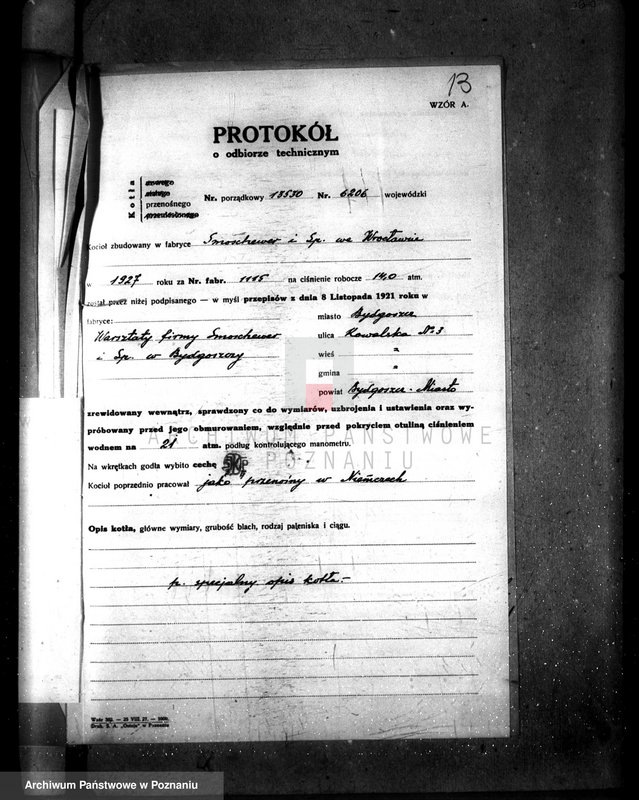 13
WZÓR A.
PROTOKÓŁ
o odbiorze technicznym
Kotła
nowego
stałego
przenośnego
przeniesionego
Nr. porządkowy 13530 Nr. 6206 wojewódzki
Kocioł zbudowany w fabryce Smoschewer i Sp. we Wrocławiu
w 1927 roku za Nr. fabr. 1115 na ciśnienie robocze 14,0 atm.
został przez niżej podpisanego — w myśl przepisów z dnia 8 Listopada 1921 roku w
fabryce:
Warsztaty firmy Smoschewer
i Sp. w Bydgoszczy
miasto Bydgoszcz
ulica Kowalska No 3
wieś "
gmina "
powiat Bydgoszcz-Miasto
zrewidowany wewnątrz, sprawdzony co do wymiarów, uzbrojenia i ustawienia oraz wy-
próbowany przed jego obmurowaniem, względnie przed pokryciem otuliną ciśnieniem
wodnem na 21 atm. podług kontrolującego manometru.
Na wkrętkach godła wybito cechę
Kocioł poprzednio pracował jako przenośny w Niemczech
Opis kotła, główne wymiary, grubość blach, rodzaj paleniska i ciągu.
p. specjalny opis kotła.-
Wzór 302. — 25 VIII. 27. — 1000.
Druk. S. A. „Ostoja" w Poznaniu
ARCHIWUM PAŃSTWOWE
W POZNANIU
Archiwum Państwowe w Poznaniu